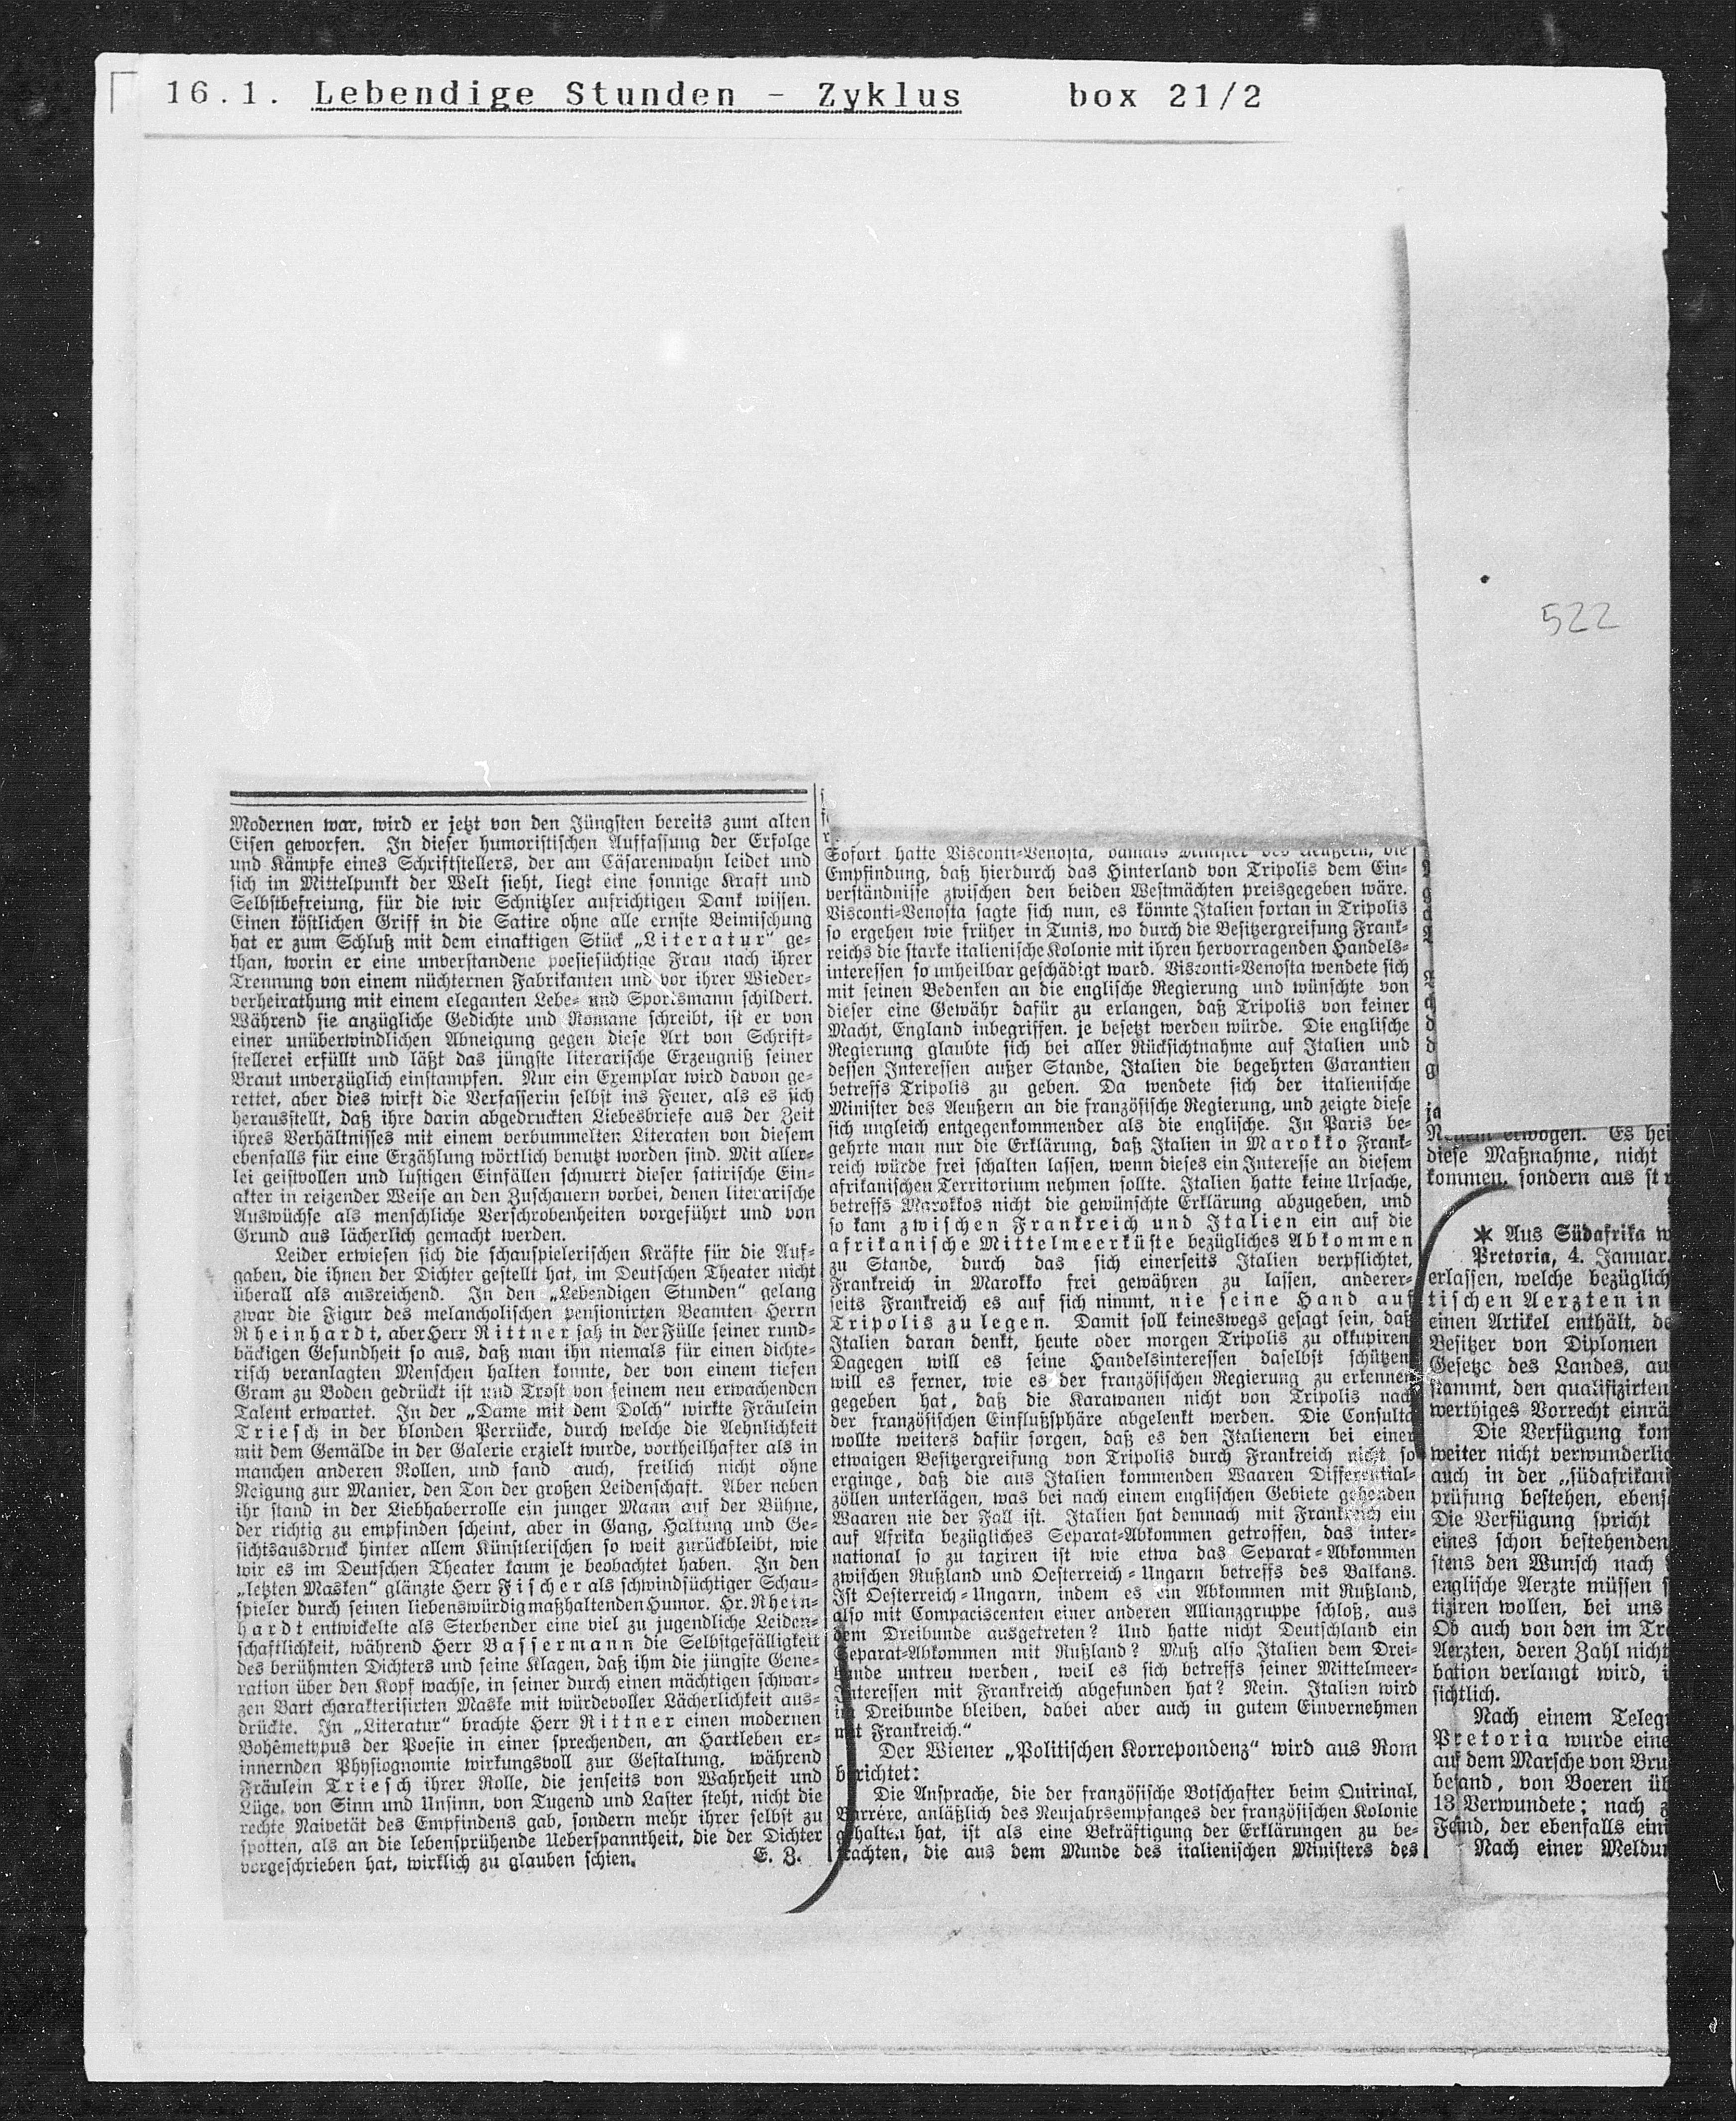 16.1. Lebendige Stunden - Zyklus box 21/2
522
Modernen war, wird er jetzt von den Jüngsten bereits zum alten
Eisen geworfen. In dieser humoristischen Auffassung der Erfolge
und Kämpfe eines Schriftstellers, der am Cäsarenwahn leidet und
sich im Mittelpunkt der Welt sieht, liegt eine sonnige Kraft und
Selbstbefreiung, für die wir Schnitzler aufrichtigen Dank wissen.
Einen köstlichen Griff in die Satire ohne alle ernste Beimischung
hat er zum Schluß mit dem einaktigen Stück „Literatur" ge-
than, worin er eine unverstandene poesiesüchtige Frau nach ihrer
Trennung von einem nüchternen Fabrikanten und vor ihrer Wieder-
verheirathung mit einem eleganten Lebe- und Sportsmann schildert.
Während sie anzügliche Gedichte und Romane schreibt, ist er von
einer unüberwindlichen Abneigung gegen diese Art von Schrift-
stellerei erfüllt und läßt das jüngste literarische Erzeugniß seiner
Braut unverzüglich einstampfen. Nur ein Exemplar wird davon ge-
rettet, aber dies wirft die Verfasserin selbst ins Feuer, als es sich
herausstellt, daß ihre darin abgedruckten Liebesbriefe aus der Zeit
ihres Verhältnisses mit einem verbummelten Literaten von diesem
ebenfalls für eine Erzählung wörtlich benutzt worden sind. Mit aller-
lei geistvollen und lustigen Einfällen schnurrt dieser satirische Ein-
akter in reizender Weise an den Zuschauern vorbei, denen literarische
Auswüchse als menschliche Verschrobenheiten vorgeführt und von
Grund aus lächerlich gemacht werden.
Leider erwiesen sich die schauspielerischen Kräfte für die Auf-
gaben, die ihnen der Dichter gestellt hat, im Deutschen Theater nicht
überall als ausreichend. In den „Lebendigen Stunden" gelang
zwar die Figur des melancholischen pensionirten Beamten Herrn
Rheinhardt, aber Herr Rittner sah in der Fülle seiner rund-
bäckigen Gesundheit so aus, daß man ihn niemals für einen dichte-
risch veranlagten Menschen halten konnte, der von einem tiefen
Gram zu Boden gedrückt ist und Trost von seinem neu erwachenden
Talent erwartet. In der „Dame mit dem Dolch" wirkte Fräulein
Triesch in der blonden Perrücke, durch welche die Aehnlichkeit
mit dem Gemälde in der Galerie erzielt wurde, vortheilhafter als in
manchen anderen Rollen, und fand auch, freilich nicht ohne
Neigung zur Manier, den Ton der großen Leidenschaft. Aber neben
ihr stand in der Liebhaberrolle ein junger Mann auf der Bühne,
der richtig zu empfinden scheint, aber in Gang, Haltung und Ge-
sichtsausdruck hinter allem Künstlerischen so weit zurückbleibt, wie
wir es im Deutschen Theater kaum je beobachtet haben. In den
„letzten Masken" glänzte Herr Fischer als schwindsüchtiger Schau-
spieler durch seinen liebenswürdig maßhaltenden Humor. Hr. Rhein-
hardt entwickelte als Sterbender eine viel zu jugendliche Leiden-
schaftlichkeit, während Herr Bassermann die Selbstgefälligkeit
des berühmten Dichters und seine Klagen, daß ihm die jüngste Gene-
ration über den Kopf wachse, in seiner durch einen mächtigen schwar-
zen Bart charakterisirten Maske mit würdevoller Lächerlichkeit aus-
drückte. In „Literatur" brachte Herr Rittner einen modernen
Bohêmetypus der Poesie in einer sprechenden, an Hartleben er-
innernden Physiognomie wirkungsvoll zur Gestaltung, während
Fräulein Triesch ihrer Rolle, die jenseits von Wahrheit und
Lüge, von Sinn und Unsinn, von Tugend und Laster steht, nicht die
rechte Naivetät des Empfindens gab, sondern mehr ihrer selbst zu
spotten, als an die lebensprühende Ueberspanntheit, die der Dichter
vorgeschrieben hat, wirklich zu glauben schien. E. Z.
Sofort hatte Visconti-Venosta, damals Minister des Aeußern, die
Empfindung, daß hierdurch das Hinterland von Tripolis dem Ein-
verständnisse zwischen den beiden Westmächten preisgegeben wäre.
Visconti-Venosta sagte sich nun, es könnte Italien fortan in Tripolis
so ergehen wie früher in Tunis, wo durch die Besitzergreifung Frank-
reichs die starke italienische Kolonie mit ihren hervorragenden Handels-
interessen so unheilbar geschädigt ward. Visconti-Venosta wendete sich
mit seinen Bedenken an die englische Regierung und wünschte von
dieser eine Gewähr dafür zu erlangen, daß Tripolis von keiner
Macht, England inbegriffen, je besetzt werden würde. Die englische
Regierung glaubte sich bei aller Rücksichtnahme auf Italien und
dessen Interessen außer Stande, Italien die begehrten Garantien
betreffs Tripolis zu geben. Da wendete sich der italienische
Minister des Aeußern an die französische Regierung, und zeigte diese
sich ungleich entgegenkommender als die englische. In Paris be-
gehrte man nur die Erklärung, daß Italien in Marokko Frank-
reich würde frei schalten lassen, wenn dieses ein Interesse an diesem
afrikanischen Territorium nehmen sollte. Italien hatte keine Ursache,
betreffs Marokkos nicht die gewünschte Erklärung abzugeben, und
so kam zwischen Frankreich und Italien ein auf die
afrikanische Mittelmeerküste bezügliches Abkommen
zu Stande, durch das sich einerseits Italien verpflichtet,
Frankreich in Marokko frei gewähren zu lassen, anderer-
seits Frankreich es auf sich nimmt, nie seine Hand auf
Tripolis zu legen. Damit soll keineswegs gesagt sein, daß
Italien daran denkt, heute oder morgen Tripolis zu okkupiren
Dagegen will es seine Handelsinteressen daselbst schützen
will es ferner, wie es der französischen Regierung zu erkennen
gegeben hat, daß die Karawanen nicht von Tripolis nach
der französischen Einflußsphäre abgelenkt werden. Die Consulta
wollte weiters dafür sorgen, daß es den Italienern bei einer
etwaigen Besitzergreifung von Tripolis durch Frankreich nicht so
erginge, daß die aus Italien kommenden Waaren Differential-
zöllen unterlägen, was bei nach einem englischen Gebiete gehenden
Waaren nie der Fall ist. Italien hat demnach mit Frankreich ein
auf Afrika bezügliches Separat-Abkommen getroffen, das inter-
national so zu taxiren ist wie etwa das Separat-Abkommen
zwischen Rußland und Oesterreich-Ungarn betreffs des Balkans.
Ist Oesterreich-Ungarn, indem es ein Abkommen mit Rußland,
also mit Compaciscenten einer anderen Allianzgruppe schloß, aus
dem Dreibunde ausgetreten? Und hatte nicht Deutschland ein
Separat-Abkommen mit Rußland? Muß also Italien dem Drei-
bunde untreu werden, weil es sich betreffs seiner Mittelmeer-
Interessen mit Frankreich abgefunden hat? Nein. Italien wird
im Dreibunde bleiben, dabei aber auch in gutem Einvernehmen
mit Frankreich."
Der Wiener „Politischen Korrepondenz" wird aus Rom
berichtet:
Die Ansprache, die der französische Botschafter beim Quirinal,
Barrère, anläßlich des Neujahrsempfanges der französischen Kolonie
gehalten hat, ist als eine Bekräftigung der Erklärungen zu be-
trachten, die aus dem Munde des italienischen Ministers des
erwogen. Es hei
diese Maßnahme, nicht
kommen, sondern aus st
* Aus Südafrika w
Pretoria, 4. Januar.
erlassen, welche bezüglich
tischen Aerzten in
einen Artikel enthält, de
Besitzer von Diplomen
Gesetze des Landes, au
stammt, den qualifizirten
werthiges Vorrecht einrä
Die Verfügung kom
weiter nicht verwunderlic
auch in der „südafrikani
prüfung bestehen, ebens
Die Verfügung spricht
eines schon bestehenden
stens den Wunsch nach
englische Aerzte müssen s
tiziren wollen, bei uns
Ob auch von den im Tr
Aerzten, deren Zahl nicht
bation verlangt wird, i
sichtlich.
Nach einem Telegr
Pretoria wurde eine
auf dem Marsche von Bru
befand, von Boeren üb
13 Verwundete; nach z
Feind, der ebenfalls eini
Nach einer Meldun